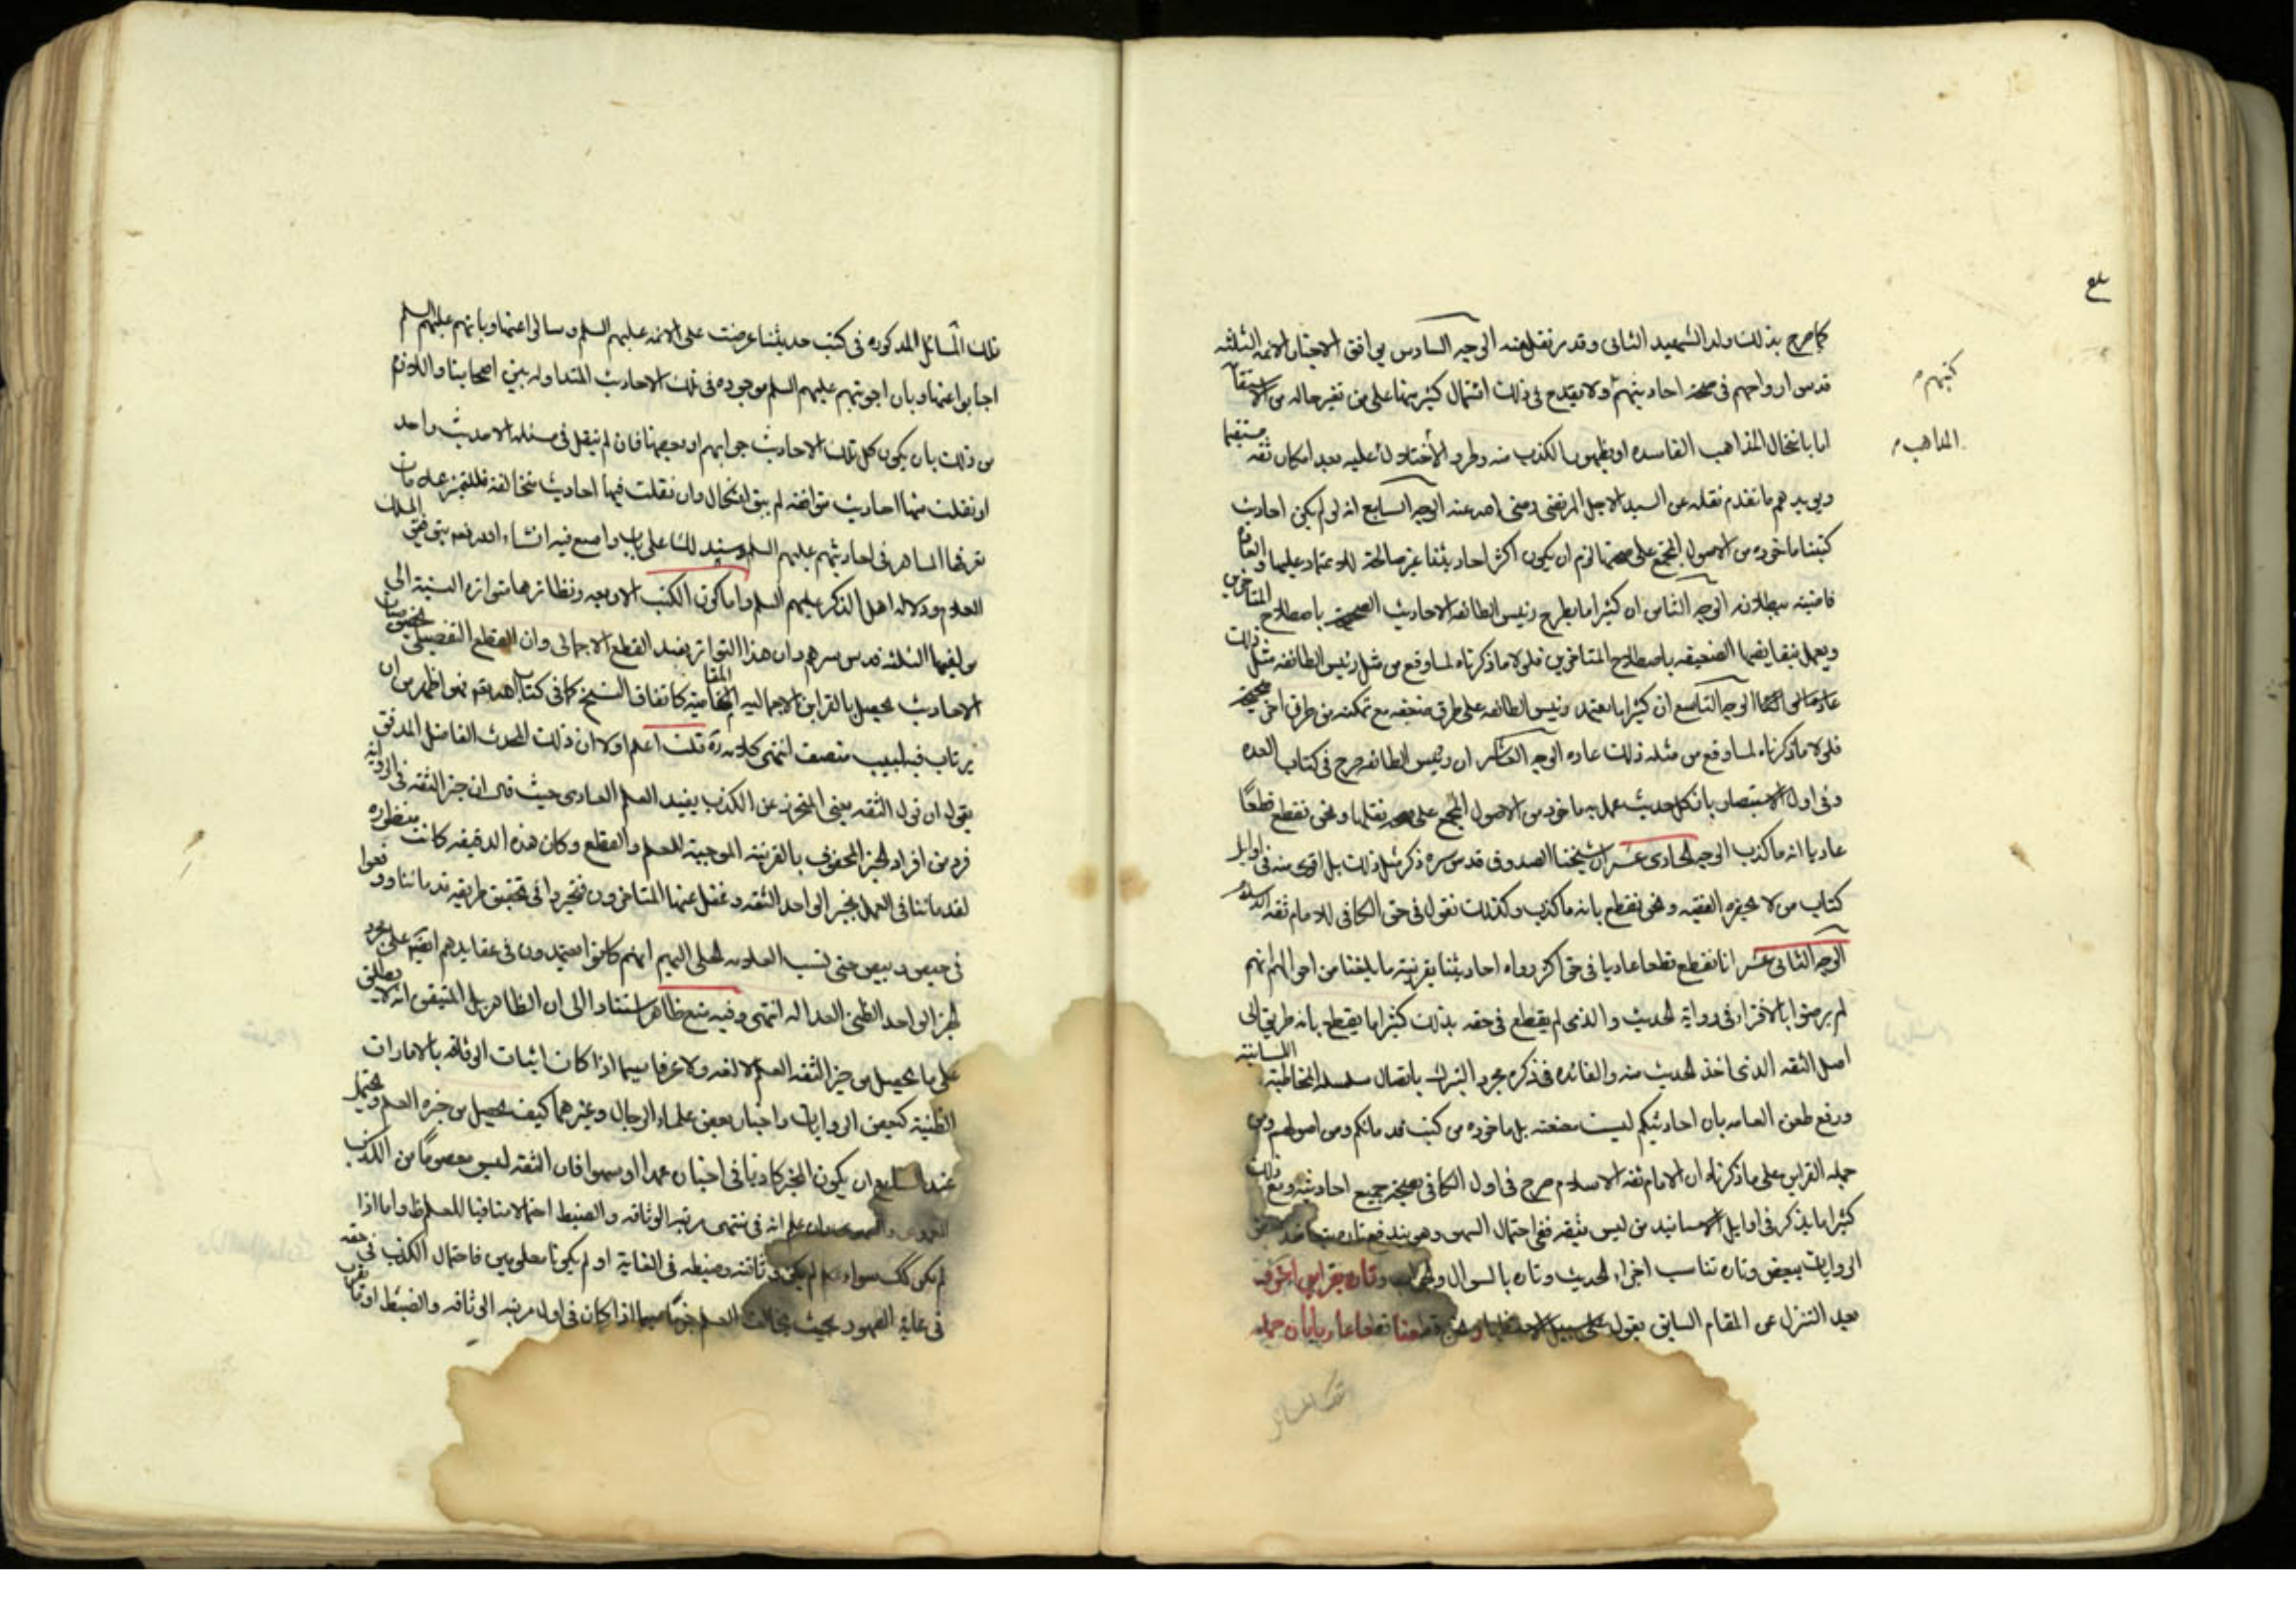 كما صرح بذلك ولد الشهيد الثانى وقد مر نقله عنه الوجه السادس يوافق الاخبار الائمه الثلثه
قدس ارواحهم فى صحة احاديثهم ولا يقدح فى ذلك اشتمال كثير منها على من تغير حاله من الاستقامة
اما بانتحال المذاهب الفاسده او بظهور الكذب منه وطرو الاختلال عليه بعد امكان ثقه مستقيما
كتبهم
المذاهب
ويويد هم ما تقدم نقله عن السيد الاجل المرتضى رضى الله عنه الوجه السابع انه لو لم يكن احاديث
كتبنا ماخوذه من الاصول المجمع على صحتها لزم ان يكون اكثر احاديثنا غير صالحة للاعتماد عليها والعادة
قاضيته ببطلانه الوجه الثامن ان كثيرا ما يطرح رئيس الطائفه الاحاديث الصحيحة باصطلاح المتاخرين
ويعمل بنقايضها الضعيفه باصطلاح المتاخرين فلولا ما ذكرناه لما وقع من مثل رئيس الطائفه مثل ذلك
عادة الوجه التاسع ان كثيرا ما يعتمد رئيس الطائفه على طرق ضعيفه مع تمكنه من طرق اخرى صحيحة
فلولا ما ذكرناه لما وقع من مثله ذلك عاده الوجه العاشر ان رئيس الطائفه صرح فى كتاب العده
وفى اول الاستبصار بان كل حديث عمل به ماخوذ من الاصول المجمع على صحه نقلها ونحن نقطع قطعًا
عاديا انه ما كذب الوجه الحادى عشر ان شيخنا الصدوق قدس سره ذكر مثل ذلك بل اقوى منه فى اوايل
كتاب من لا يحضره الفقيه ونحن نقطع بانه ما كذب وكذلك نقول فى حق الكافى للامام ثقه الاسلام
الوجه الثانى عشر انا نقطع قطعا عاديا فى حق اكثر رواه احاديثنا بقرينه ما بلغنا من احوالهم انهم
لم يرضوا بالافتراء فى رواية الحديث والذى لم يقطع فى حقه بذلك كثيرا ما يقطع بانه طريق الى
اصل الثقه الذى اخذ الحديث منه والفائده فى ذكره مجرد التبرك باتصال سلسله المخاطبه اللسانيه
ورفع طعن العامه بان احاديثكم ليست معنعنه بل ماخوذه من كتب قدمائكم ومن اصولهم ومن
جمله القراين على ما ذكرناه ان الامام ثقه الاسلام صرح فى اول الكافى بصحة جميع احاديثه ومع ذلك
كثيرا ما يذكر فى اوايل الاسانيد من ليس بثقه فبقى احتمال السهو وهو يندفع تاره بتعاضد بعض
الروايات ببعض وتاره تناسب اجزاء الحديث وتاره بالسوال والجواب وتاره بقراين اخرى
بعد التنزل عن المقام السابق نقول على سبيل الاستظهار ونحن قطعنا قطعا عاديا بان جمله
تلك المسائل المذكوره فى كتب حديثنا عرضت على الائمه عليهم السلم وسالوا عنها وبانهم عليهم السلم
اجابوا عنها وبان اجوبتهم عليهم السلم موجوده فى تلك الاحاديث المتداوله بين اصحابنا واللازم
من ذلك بان يكون كل تلك الاحاديث جوابهم او بعضها فان لم ينقل فى مسئله الا حديث واحد
او نقلت منها احاديث متوافقه لم يبق اشكال وان نقلت فيها احاديث متخالفه فللتميز علامات
يعرفها الماهر فى احاديثهم عليهم السلم وسنبد لك على باب واسع فيه ان شاء الله نعم بتوفيق الملك
العلام ودلاله اهل الذكر عليهم السلم واما كون الكتب الاربعه ونظائرها متواتره النسبة الى
مولفيها الثلثه قدس سرهم وان هذا التواتر يفيد القطع الاجمالى وان القطع التفصيلى بخصوصيات
الاحاديث يحصل بالقراين الاجماليه المقاميه كاتفاق النسخ كما فى كتاب الله نعم فهو اظهر من ان
يرتاب فيه لبيب منصف انتهى كلامه ره قلت اعلم اولا ان ذلك المحدث الفاضل المدقق
يقول ان قول الثقه يعنى المتحرز عن الكذب يفيد العلم العادى حيث قال ان خبر الثقه فى الروايه
فرد من افراد الخبر المحفوف بالقرينه الموجبة للعلم والقطع وكان هذه الدقيقه كانت منظوره
لقدمائنا فى العمل بخبر الواحد الثقه وغفل عنها المتاخرون فتحيروا فى تحقيق طريقه قدمائنا ووقعوا
فى حيص وبيص حتى نسب العلامه الحلى اليهم انهم كانوا يعتمدون فى عقايدهم ايضا على مجرد
خبر الواحد الظنى العداله انتهى وفيه منع ظاهر استنادا الى ان الظاهر بل المتيقن انه لا يطلق
على ما يحصل من خبر الثقه العلم لا لغه ولا عرفا سيما اذا كان اثبات الوثاقه بالامارات
الظنية كبعض الروايات واخبار بعض علماء الرجال وغيرهما كيف يحصل من خبره العلم ويحتمل
عند السامع ان يكون المخبر كاذبا فى اخباره عمدا او سهوا فان الثقه ليس معصومًا من الكذب
والسهو وان علم انه فى منتهى مرتبه الوثاقه والضبط احتمالا منافيا للعلم ظ واما اذا
لم يكن كك سواء علم لم يكن وثاقته وضبطه فى الغاية او لم يكونا معلومين فاحتمال الكذب فى حقه
فى غاية الظهور بحيث يخالف العلم جزما سيما اذا كان فى اول مرتبه الوثاقه والضبط او قارب